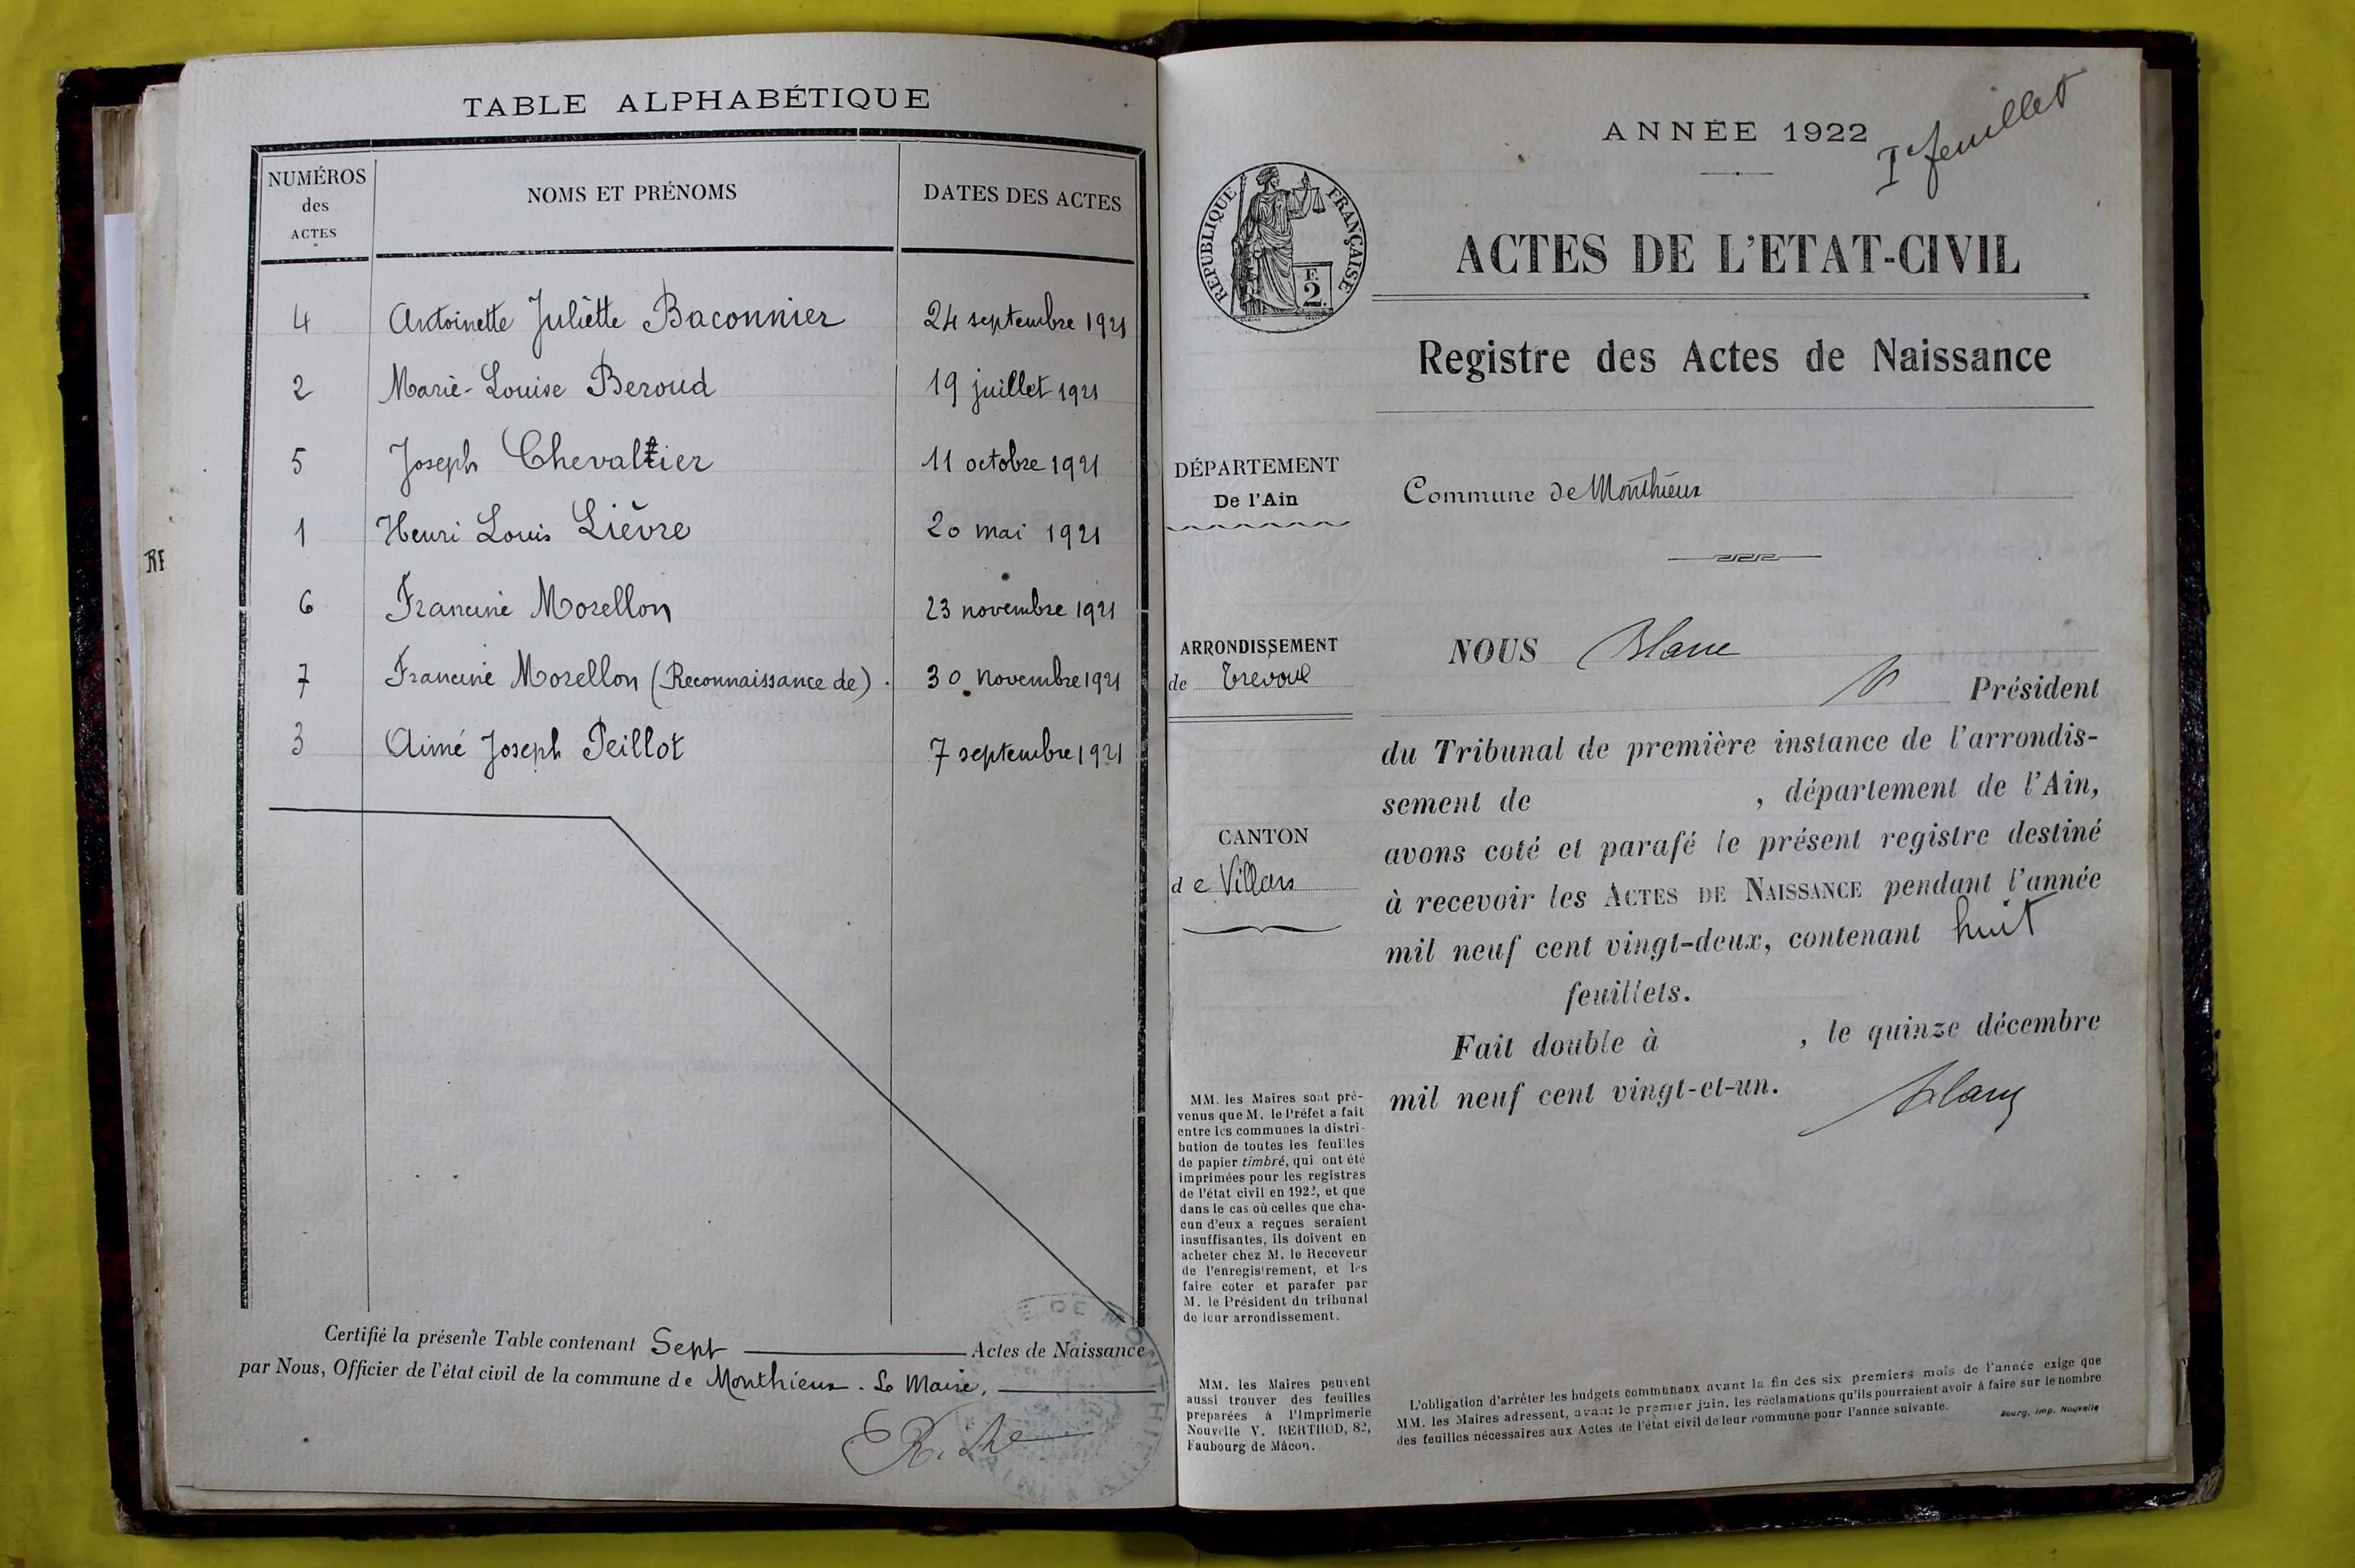 TABLE ALPHABÉTIQUE
NUMÉROS des ACTES NOMS ET PRÉNOMS DATES DES ACTES
4 Antoinette Juliette Baconnier 24 septembre 1921
2 Marie-Louise Beroud 19 juillet 1921
5 Joseph Chevallier 11 octobre 1921
1 Henri Louis Lièvre 20 mai 1921
6 Francine Morellon 23 novembre 1921
7 Francine Morellon (Reconnaissance de) 30 novembre 1921
3 Aimé Joseph Peillot 7 septembre 1921
Certifié la présente Table contenant Sept Actes de Naissance
par Nous, Officier de l'état civil de la commune de Monthieux. Le Maire,
ANNÉE 1922
Ier feuillet
RÉPUBLIQUE FRANÇAISE
F.
2.
ACTES DE L'ETAT-CIVIL
Registre des Actes de Naissance
DÉPARTEMENT
De l'Ain
Commune de Monthieux
ARRONDISSEMENT
de Trévoux
CANTON
de Villars
NOUS Blanc
Président
du Tribunal de première instance de l'arrondis-
sement de , département de l'Ain,
avons coté et parafé le présent registre destiné
à recevoir les ACTES DE NAISSANCE pendant l'année
mil neuf cent vingt-deux, contenant huit
feuillets.
Fait double à , le quinze décembre
mil neuf cent vingt-et-un.
Blanc
MM. les Maires sont pré-
venus que M. le Préfet a fait
entre les communes la distri-
bution de toutes les feuilles
de papier timbré, qui ont été
imprimées pour les registres
de l'état civil en 1922, et que
dans le cas où celles que cha-
cun d'eux a reçues seraient
insuffisantes, ils doivent en
acheter chez M. le Receveur
de l'enregistrement, et les
faire coter et parafer par
M. le Président du tribunal
de leur arrondissement.
MM. les Maires peuvent
aussi trouver des feuilles
préparées à l'Imprimerie
Nouvelle V. BERTHOD, 82,
Faubourg de Mâcon.
L'obligation d'arrêter les budgets communaux avant la fin des six premiers mois de l'année exige que
MM. les Maires adressent, avant le premier juin, les réclamations qu'ils pourraient avoir à faire sur le nombre
des feuilles nécessaires aux Actes de l'état civil de leur commune pour l'année suivante.
Bourg, Imp. Nouvelle